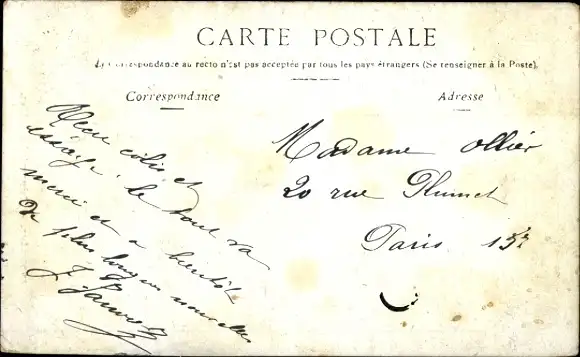 CARTE POSTALE
La Correspondance au recto n'est pas acceptée par tous les pays étrangers (Se renseigner à la Poste).
Correspondance
Adresse
Reçu colis et
le tout va
merci et a bientôt
de plus longues nouvelles
J.
Madame Ollier
20 rue Plumet
Paris 15e